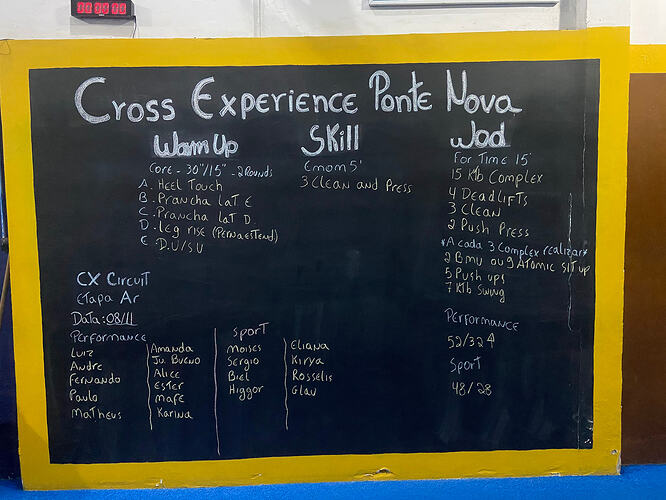 Cross Experience Ponte Nova
Warm Up
Core - 30"/15" - 2 Rounds
A. Heel Touch
B. Prancha Lat E
C. Prancha Lat D.
D. Leg rise (Perna estend)
E D.U/S.U
Skill
Emom 5'
3 Clean and Press
Wod
For Time 15'
15 Ktb Complex
4 Deadlifts
3 Clean
2 Push Press
*A cada 3 Complex realizar*
2 Bmu ou 9 Atomic sit up
5 Push ups
7 Ktb Swing
Performance
52/32
Sport
48/28
CX Circuit
etapa Ar
Data: 08/11
Performance
Luiz
Andre
Fernando
Paulo
Matheus
Amanda
Ju. Bueno
Alice
Ester
Mafe
Karina
Sport
Moises
Sergio
Biel
Higgor
Eliana
Kirya
Rosselis
Glau